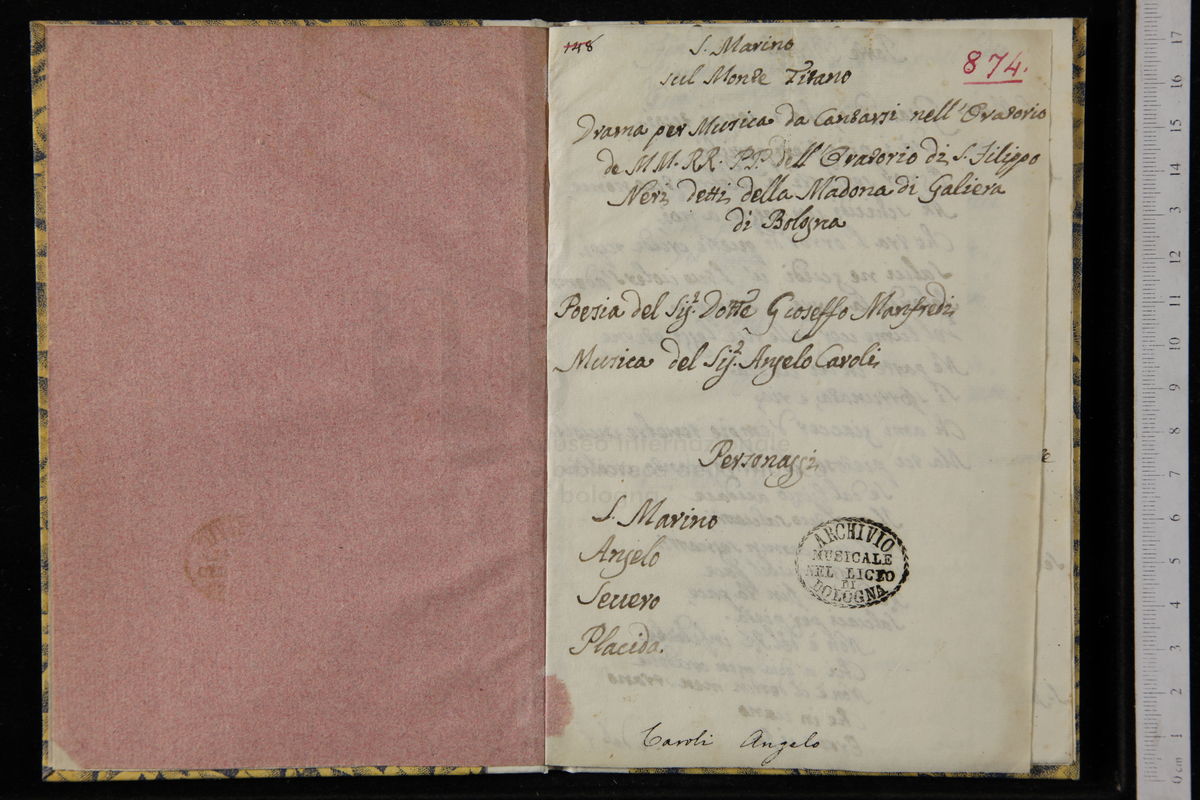 148
S. Marino
sul Monte Titano
874.
Drama per Musica da Cantarsi nell'Oratorio
de MM. RR. PP. dell'Oratorio di S. Filippo
Neri detti della Madona di Galiera
di Bologna
Poesia del Sig.r Dott.e Gioseffo Manfredi
Musica del Sig.r Angelo Caroli
Personaggi
S. Marino
Angelo
Severo
Placida.
ARCHIVIO
MUSICALE
NEL LICEO
DI
BOLOGNA
Caroli Angelo